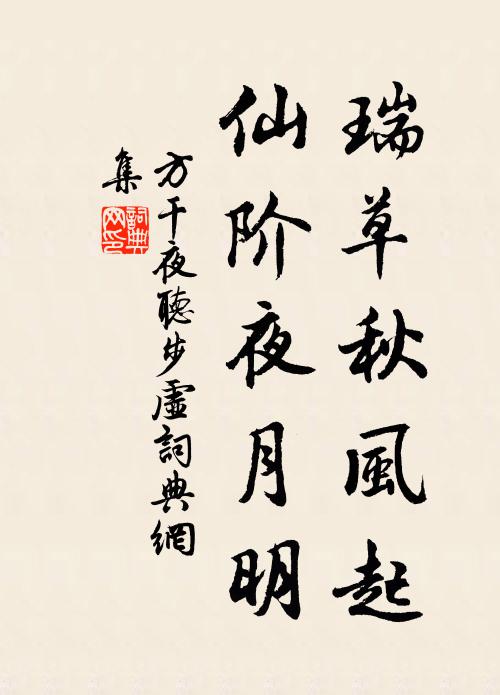 瑞草秋風起
仙阶夜月明
方干夜聽步虛詞典網
集
詞典網印